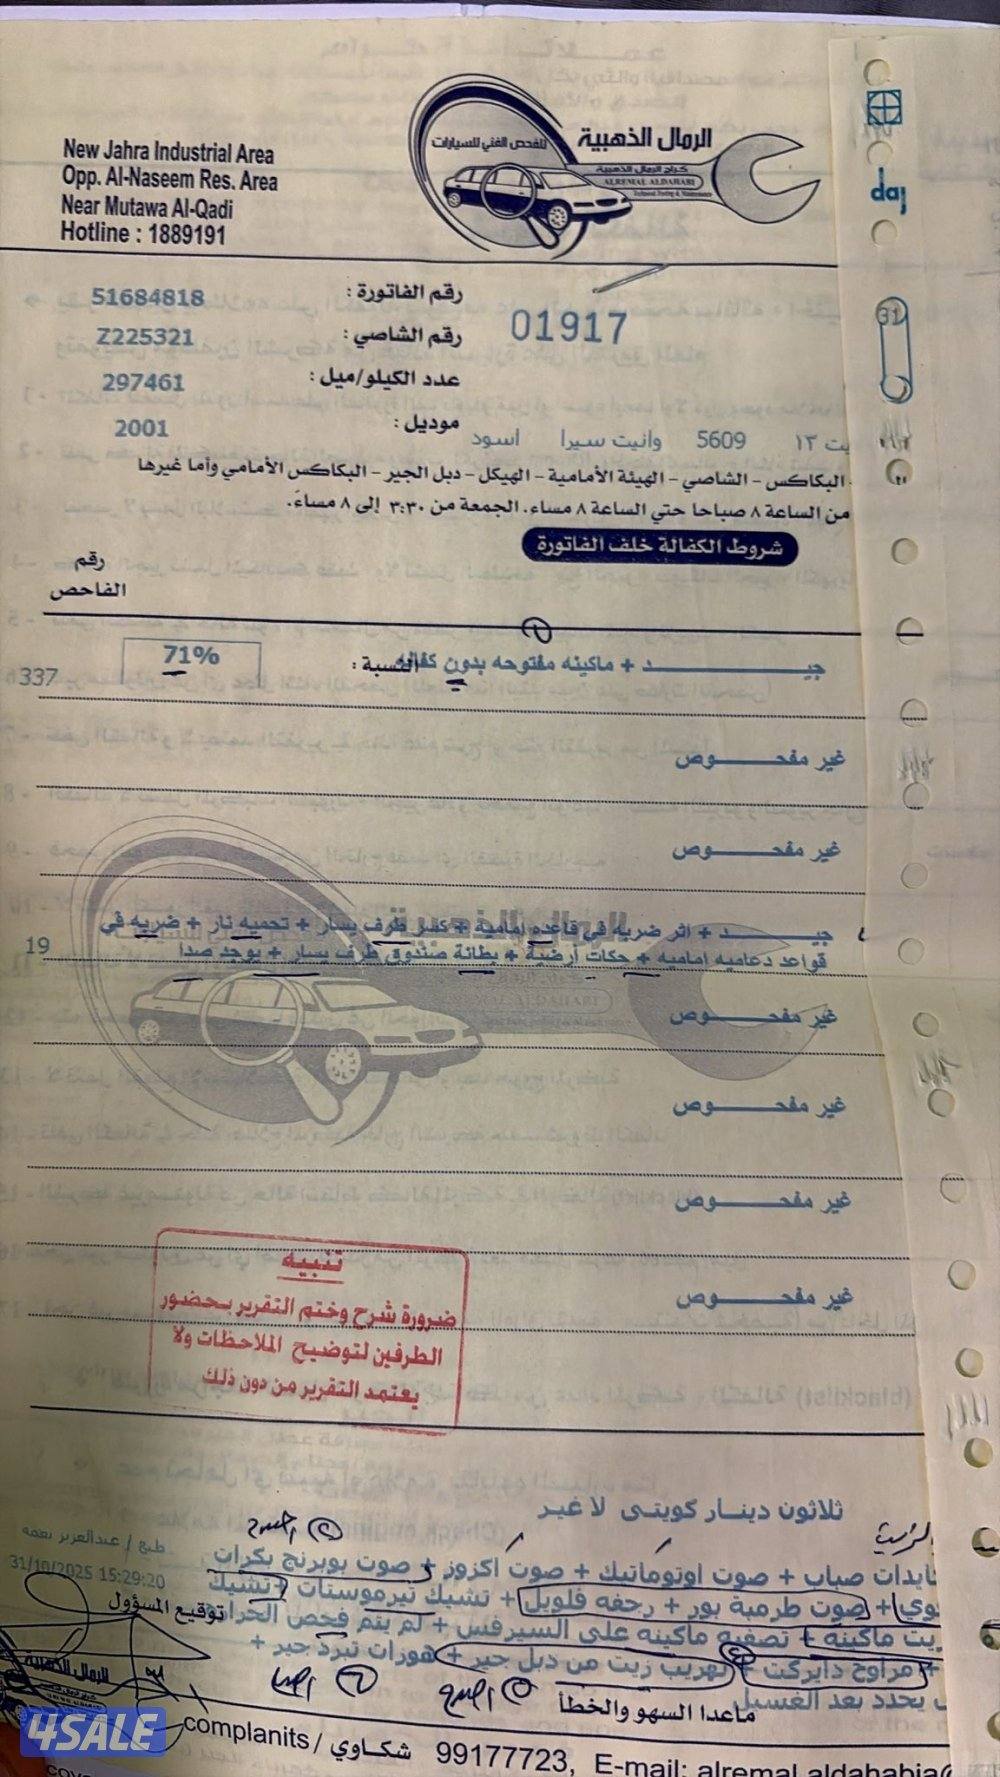 الرمال الذهبية
للفحص الفني للسيارات
كراج الرمال الذهبية
ALREMAL ALDAHABI
Technical Testing & Maintenance
New Jahra Industrial Area
Opp. Al-Naseem Res. Area
Near Mutawa Al-Qadi
Hotline : 1889191
daj
31
رقم الفاتورة : 51684818
01917
رقم الشاصي : Z225321
عدد الكيلو/ميل : 297461
موديل : 2001
يت ١٣ 5609 وانيت سيرا اسود
البكاكس - الشاصي - الهيئة الأمامية - الهيكل - دبل الجير - البكاكس الأمامي وأما غيرها
من الساعة ٨ صباحا حتي الساعة ٨ مساء. الجمعة من ٣:٣٠ إلى ٨ مساءً.
شروط الكفالة خلف الفاتورة
رقم
الفاحص
جيـــــد + ماكينه مفتوحه بدون كفاله النسبة : 71%
337
غير مفحـــــوص
غير مفحـــــوص
جيـــــد + اثر ضربه في قاعده إمامية + كسر طرف يسار + تحميه نار + ضربه في
قواعد دعاميه إماميه + حكات أرضية + بطانة صندوق طرف يسار + يوجد صدا
19
غير مفحـــــوص
غير مفحـــــوص
غير مفحـــــوص
غير مفحـــــوص
تنبيه
ضرورة شرح وختم التقرير بحضور
الطرفين لتوضيح الملاحظات ولا
يعتمد التقرير من دون ذلك
ثلاثون دينار كويتى لا غير
طبع / عبدالعزيز نعمه
31/10/2025 15:29:20
توقيع المسؤول
بايدات صباب + صوت اوتوماتيك + صوت اكزوز + صوت بوبرنج بكرات
صوت طرمبة بور + رجفه فلويل + تشيك تيرموستات + تشيك
زيت ماكينه + تصفيه ماكينه على السيرفس + لم يتم فحص
+ مراوح دايركت + تهريب زيت من دبل جير + هورات تبرد جير +
يحدد بعد الغسيل
ماعدا السهو والخطأ
الرمال الذهبية
complanits / شكاوي 99177723, E-mail: alremal.aldahabia@
4SALE